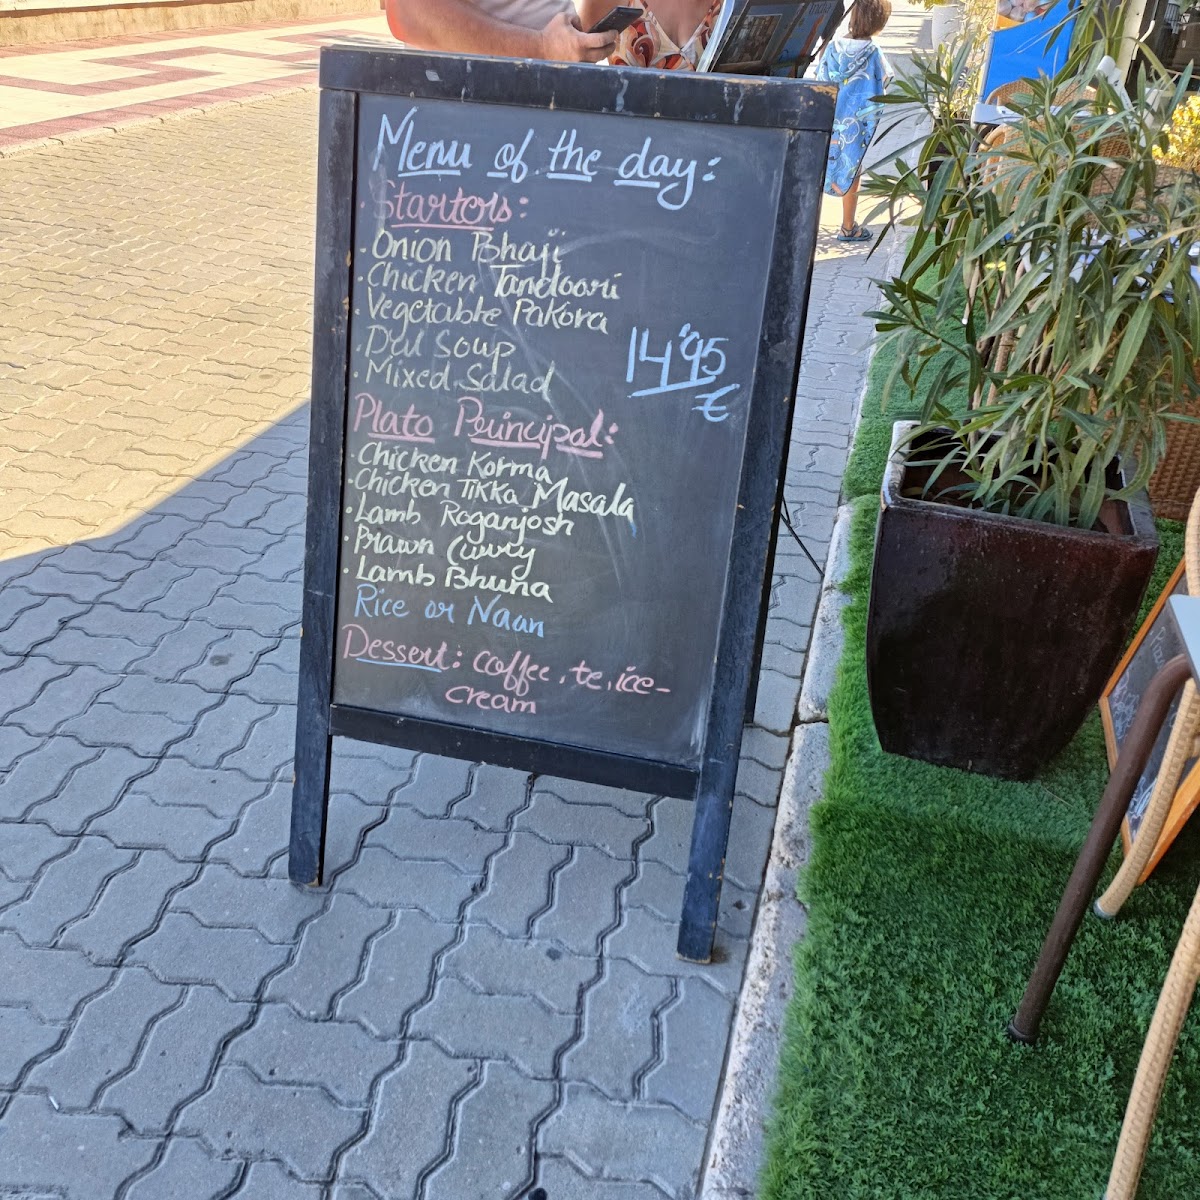 Menu of the day:
. Starters:
. Onion Bhaji
. Chicken Tandoori
. Vegetable Pakora
. Dal Soup
. Mixed Salad
14'95
€
Plato Principal:
. Chicken Korma
. Chicken Tikka Masala
. Lamb Roganjosh
. Prawn Curry
. Lamb Bhuna
Rice or Naan
Dessert: coffee, te, ice-
cream